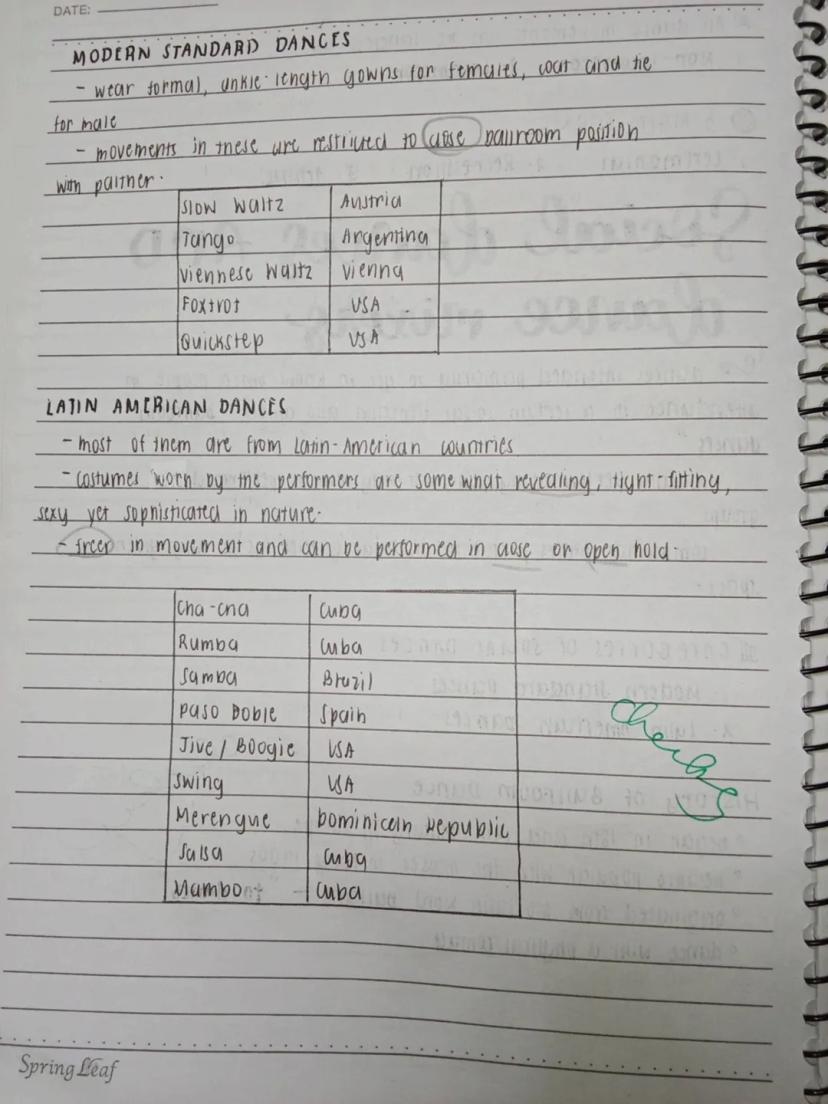 DATE:
MODERN STANDARD DANCES
- wear formal, ankle-length gowns for females, coat and tie
for male
- movements in these are restricted to close ballroom position
with partner.
Slow Waltz Austria
Tango Argentina
Viennese Waltz Vienna
Foxtrot USA
Quickstep USA
LATIN AMERICAN DANCES
- most of them are from Latin-American countries
- costumes worn by the performers are some what revealing, tight-fitting,
sexy yet sophisticated in nature.
- freer in movement and can be performed in close or open hold.
Cha-cha Cuba
Rumba Cuba
Samba Brazil
Paso Doble Spain
Jive / Boogie USA
Swing USA
Merengue Dominican Republic
Salsa Cuba
Mambo Cuba
Spring Leaf